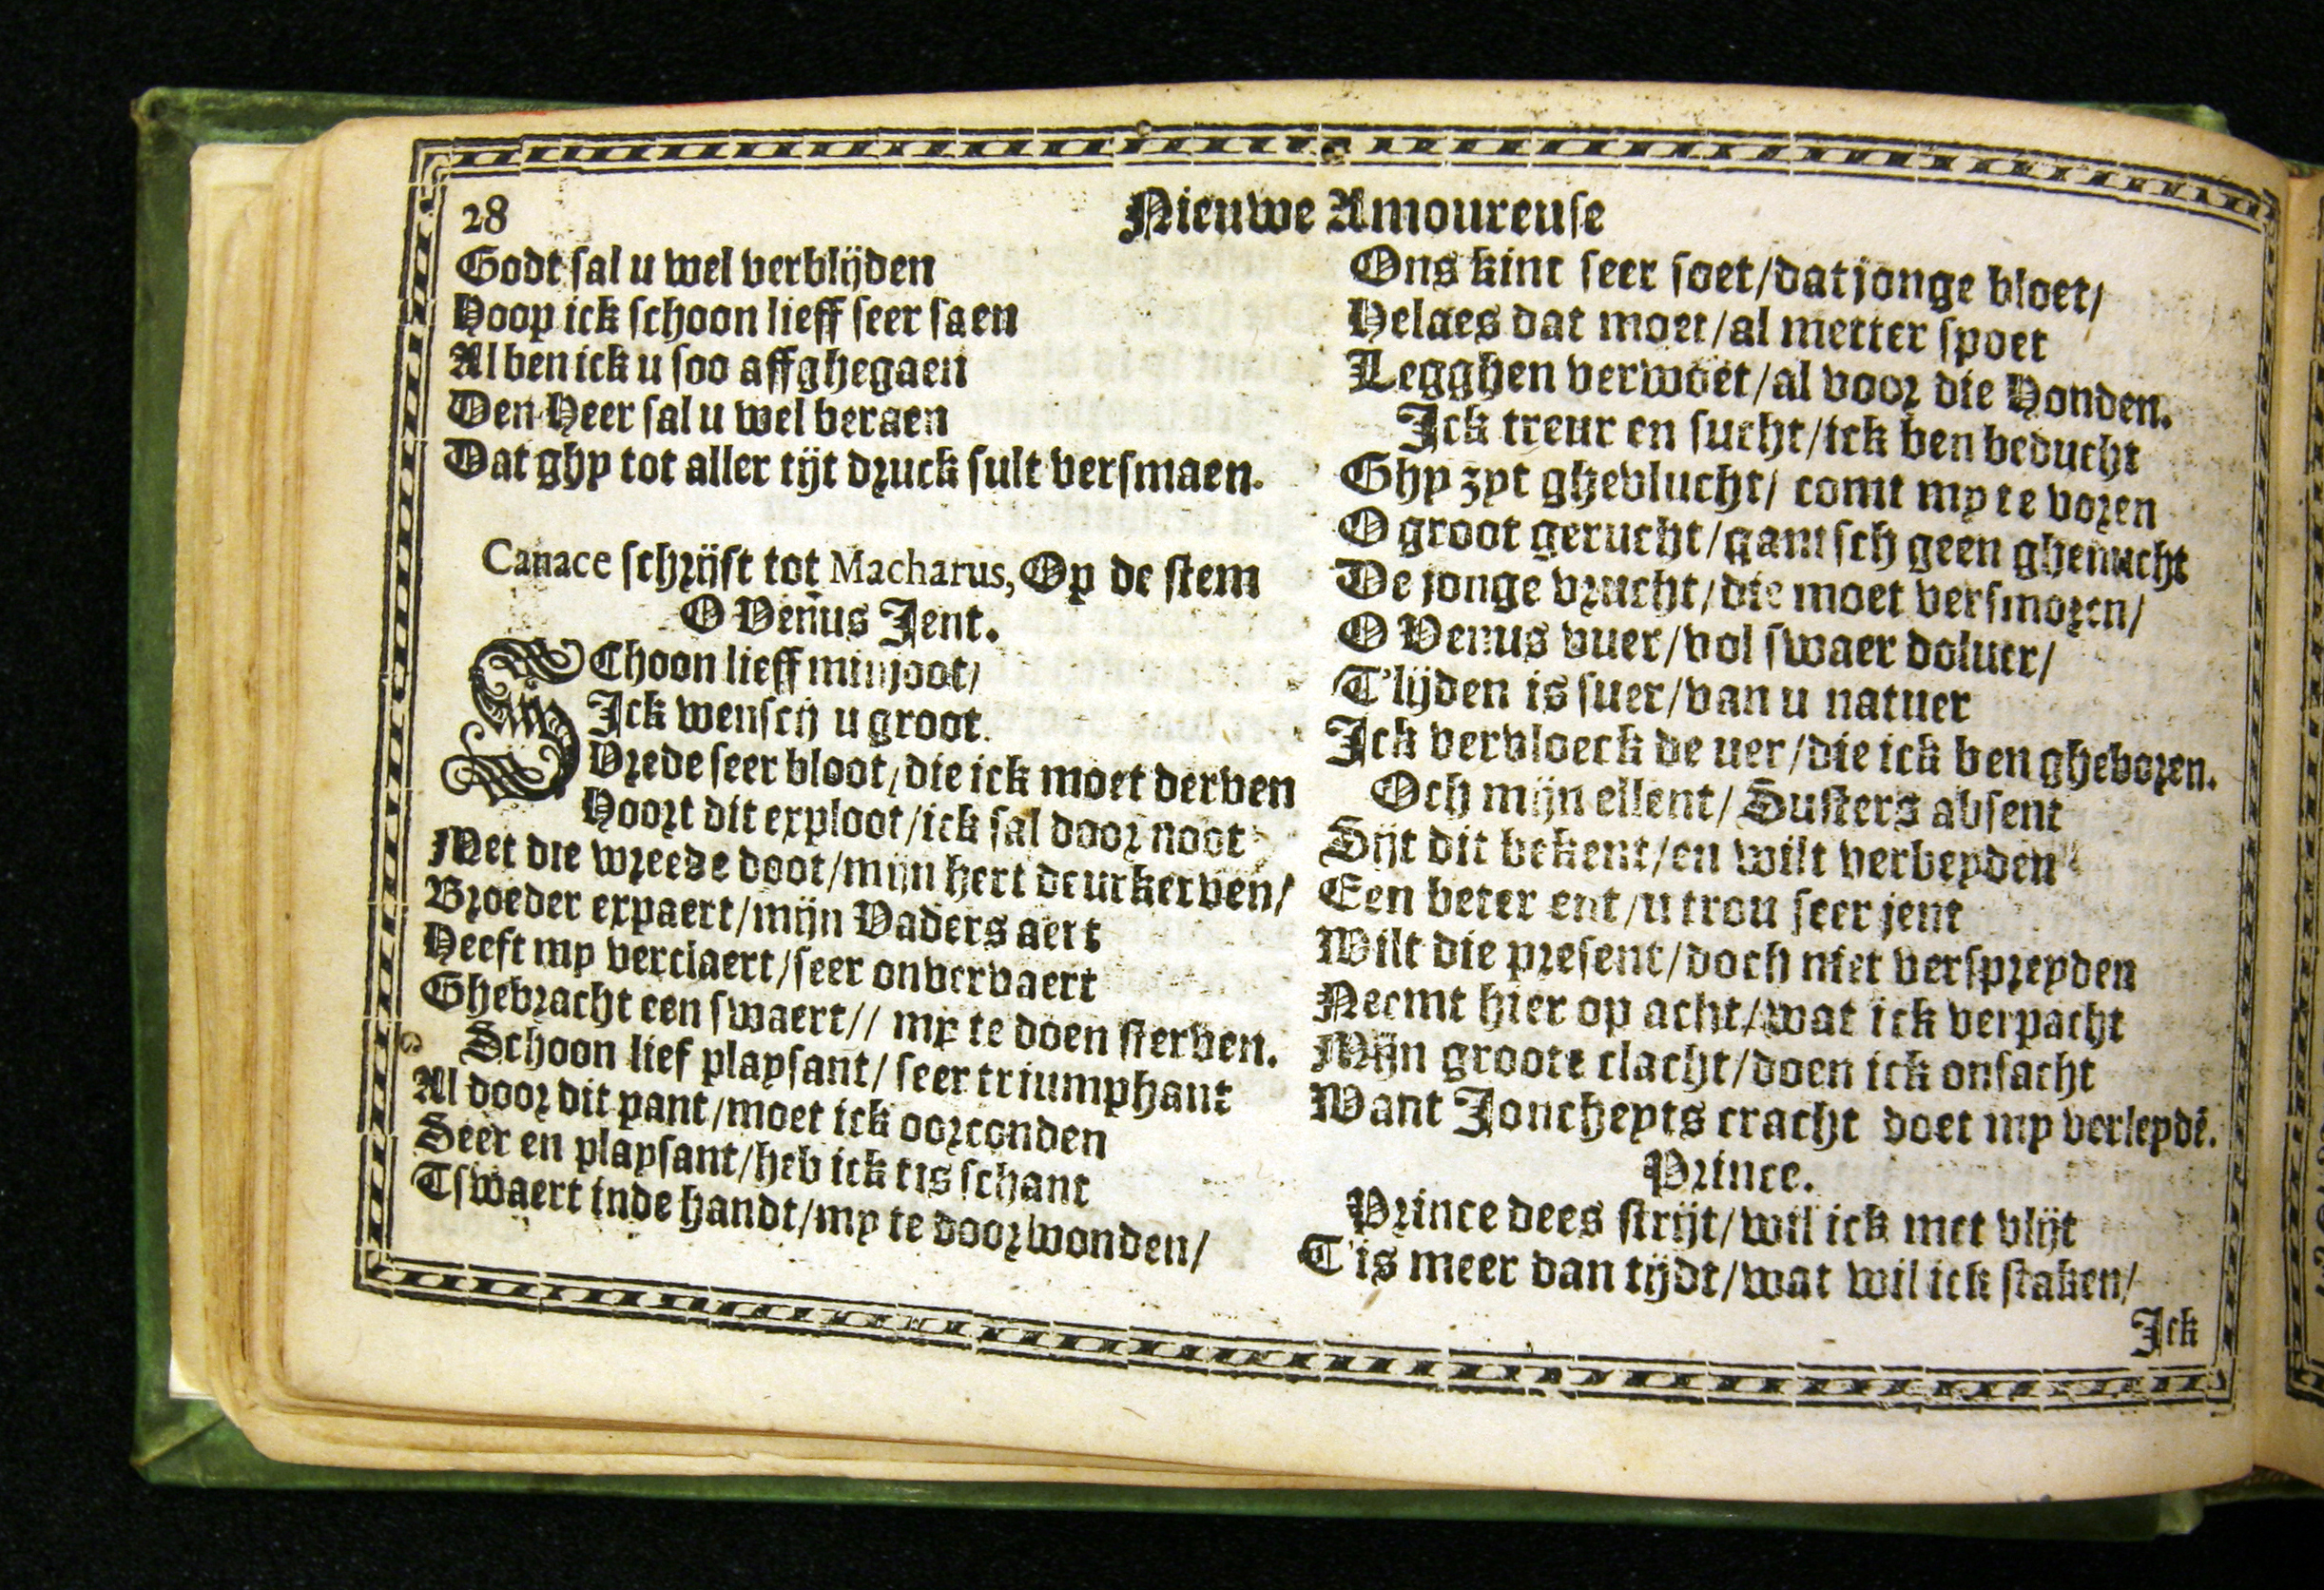 28
Nieuwe Amoureuse
Godt sal u wel verblijden
Hoop ick schoon lieff seer saen
Al ben ick u soo affghegaen
Den Heer sal u wel beraen
Dat ghy tot aller tijt druck sult versmaen.
Canace schrijft tot Macharus, Op de stem
O Venus Jent.
SChoon lieff minjoot/
Ick wensch u groot
Vrede seer bloot/die ick moet derven
Hoort dit exploot/ick sal door noot
Met die wreede doot/mijn hert deurkerven/
Broeder expaert/mijn Vaders aert
Heeft my verclaert/seer onvervaert
Ghebracht een swaert// my te doen sterven.
Schoon lief playsant/ seer triumphant
Al door dit pant/moet ick oorconden
Seer en playsant/heb ick tis schant
Tswaert inde handt/my te doorwonden/
Ons kint seer soet/dat jonge bloet/
Helaes dat moet/al metter spoet
Legghen verwoet/al voor die Honden.
Ick treur en sucht/ick ben beducht
Ghy zyt ghevlucht/ comt my te voren
O groot gerucht/gantsch geen ghenucht
De jonge vrucht/die moet versmoren/
O Venus vuer/vol swaer doluer/
T'lijden is suer/van u natuer
Ick vervloeck de uer/die ick ben gheboren.
Och mijn ellent/ Susters absent
Sijt dit bekent/en wilt verbeyden
Een beter ent/u trou seer jent
Wilt die present/doch niet verspreyden
Neemt hier op acht/wat ick verpacht
Mijn groote clacht/doen ick onsacht
Want Joncheyts cracht doet my verleydē.
Prince.
Prince dees strijt/wil ick met vlijt
T'is meer dan tijdt/wat wil ick staken/
Ick